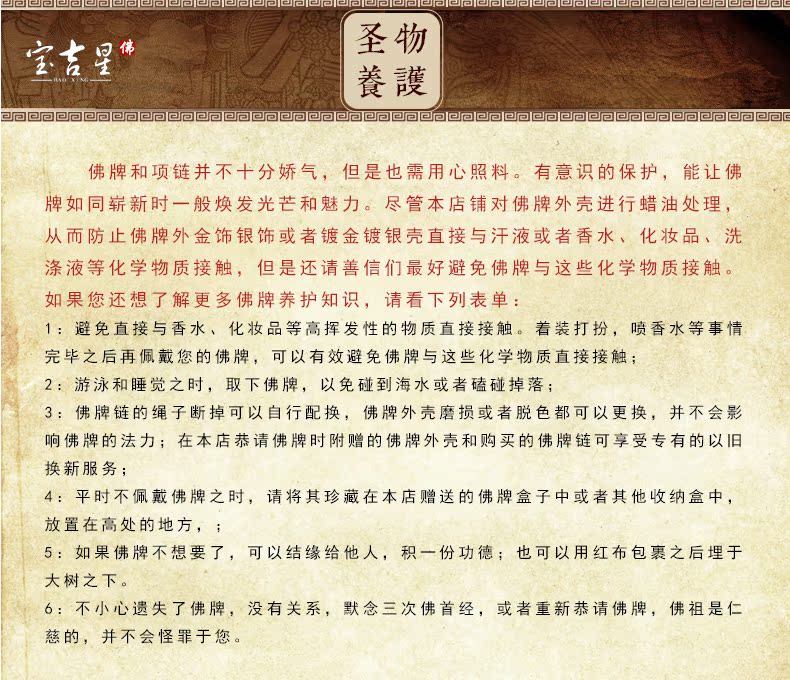 宝吉星
佛
BAO JI XING
圣物
養護
佛牌和项链并不十分娇气，但是也需用心照料。有意识的保护，能让佛
牌如同崭新时一般焕发光芒和魅力。尽管本店铺对佛牌外壳进行蜡油处理，
从而防止佛牌外金饰银饰或者镀金镀银壳直接与汗液或者香水、化妆品、洗
涤液等化学物质接触，但是还请善信们最好避免佛牌与这些化学物质接触。
如果您还想了解更多佛牌养护知识，请看下列表单：
1：避免直接与香水、化妆品等高挥发性的物质直接接触。着装打扮，喷香水等事情
完毕之后再佩戴您的佛牌，可以有效避免佛牌与这些化学物质直接接触；
2：游泳和睡觉之时，取下佛牌，以免碰到海水或者磕碰掉落；
3：佛牌链的绳子断掉可以自行配换，佛牌外壳磨损或者脱色都可以更换，并不会影
响佛牌的法力；在本店恭请佛牌时附赠的佛牌外壳和购买的佛牌链可享受专有的以旧
换新服务；
4：平时不佩戴佛牌之时，请将其珍藏在本店赠送的佛牌盒子中或者其他收纳盒中，
放置在高处的地方，；
5：如果佛牌不想要了，可以结缘给他人，积一份功德；也可以用红布包裹之后埋于
大树之下。
6：不小心遗失了佛牌，没有关系，默念三次佛首经，或者重新恭请佛牌，佛祖是仁
慈的，并不会怪罪于您。